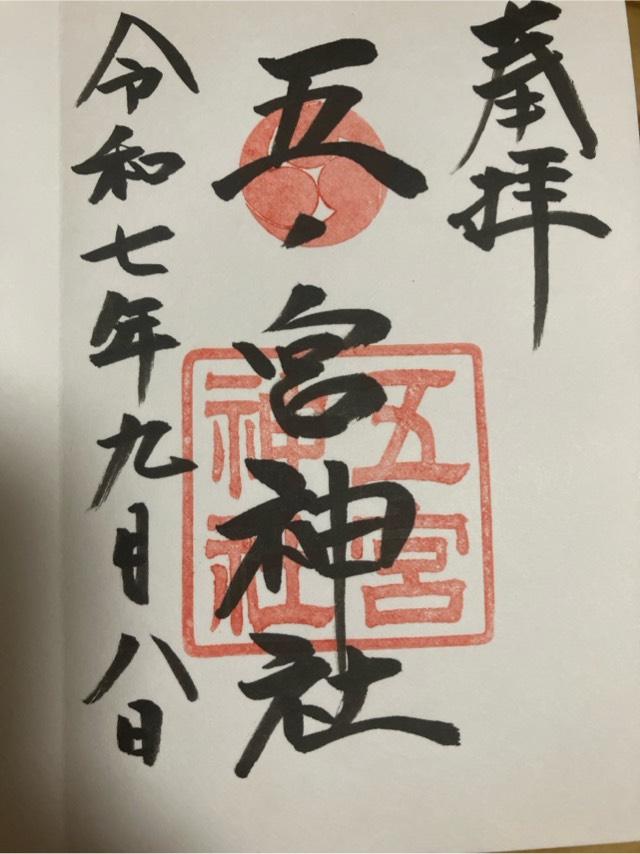 奉拝
五ノ宮神社
五宮
神社
令和七年九月八日